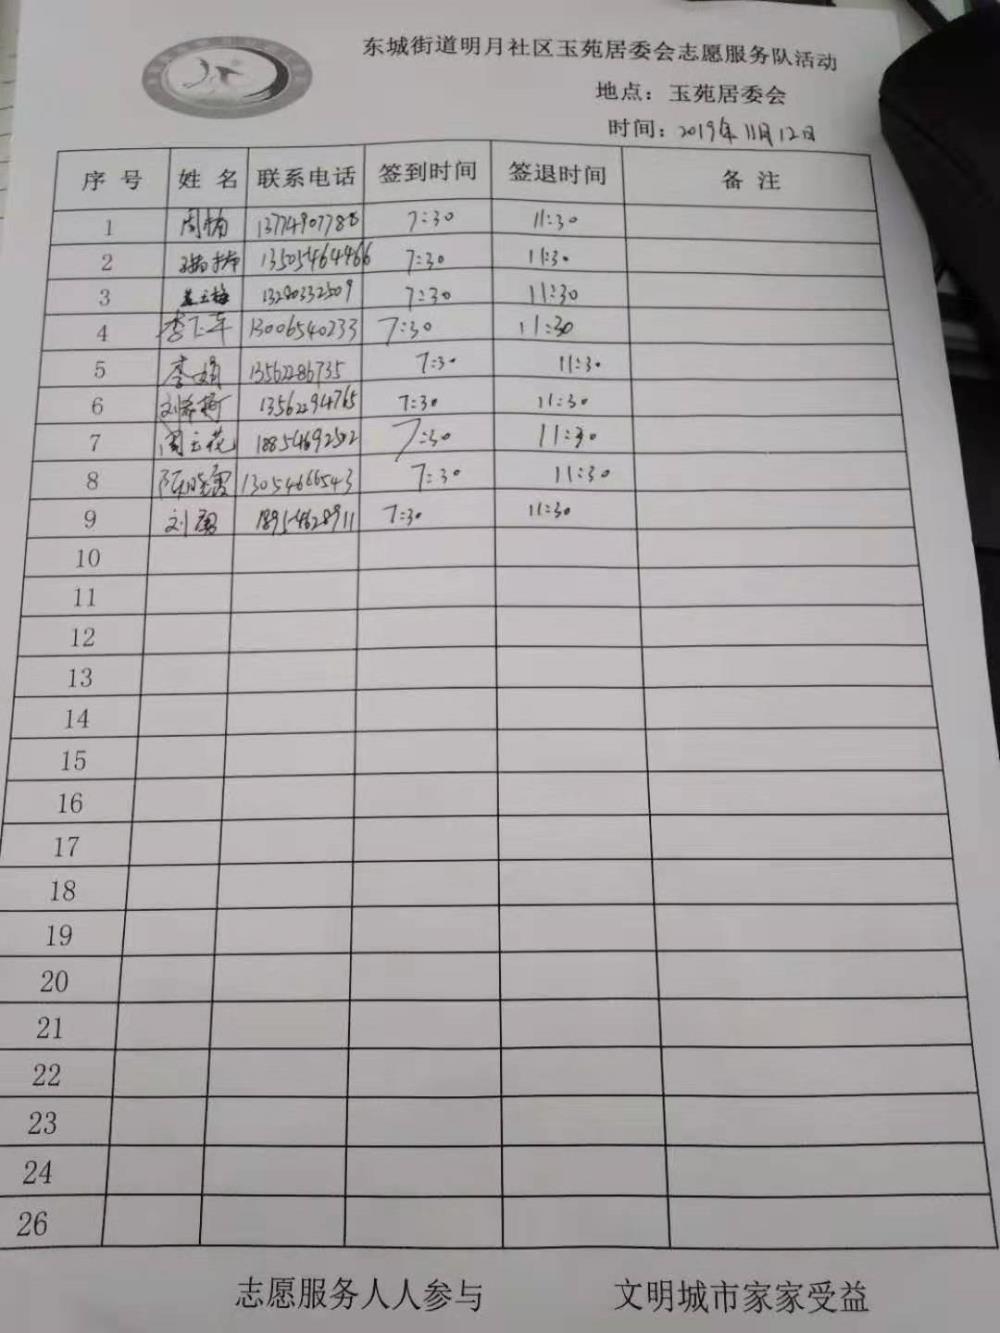 东城街道明月社区玉苑居委会志愿服务队活动
地点：玉苑居委会
时间：2019年11月12日
序号 姓名 联系电话 签到时间 签退时间 备注
1 周楠 13774907786 7:30 11:30
2 13505464466 7:30 11:30
3 13280332509 7:30 11:30
4 李飞车 13006540233 7:30 11:30
5 李娟 13562286735 7:30 11:30
6 13562294765 7:30 11:30
7 周云花 18854692502 7:30 11:30
8 陈晓霞 13054666543 7:30 11:30
9 刘 18954628911 7:30 11:30
10
11
12
13
14
15
16
17
18
19
20
21
22
23
24
26
志愿服务人人参与 文明城市家家受益